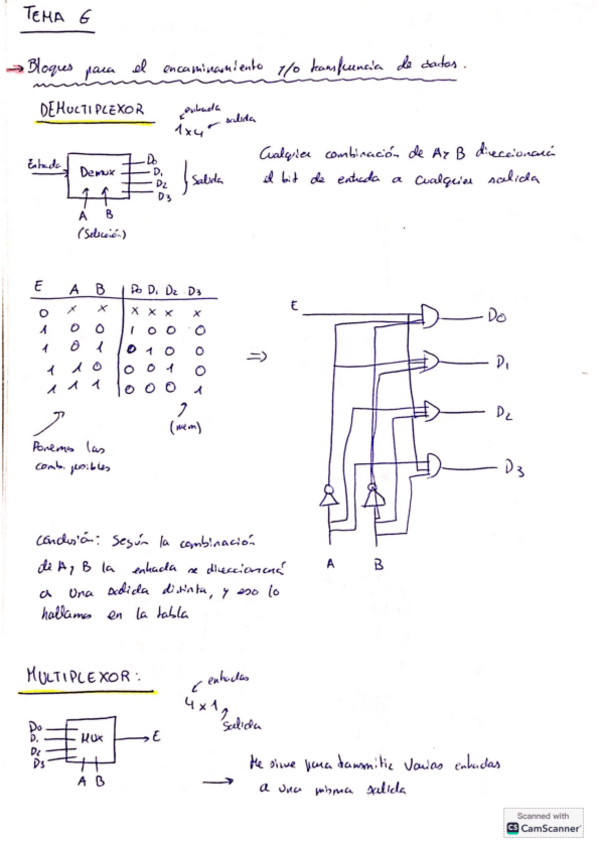 TEMA 6
→ Bloques para el encaminamiento y/o transferencia de datos.
DEMULTIPLEXOR
entrada
1x4
salida
Entrada
Demux
D0
D1
D2
D3
Salida
A B
(Selección)
Cualquier combinación de A y B direccionará
el bit de entrada a cualquier salida
E A B D0 D1 D2 D3
0 x x x x x x
1 0 0 1 0 0 0
1 0 1 0 1 0 0
1 1 0 0 0 1 0
1 1 1 0 0 0 1
(mem)
Ponemos las
comb. posibles
=>
E
D0
D1
D2
D3
A B
Conclusión: Según la combinación
de A y B la entrada se direccionará
a una salida distinta, y eso lo
hallamos en la tabla
MULTIPLEXOR:
entradas
4x1
Salida
D0
D1
D2
D3
MUX
E
A B
→ Me sirve para transmitir varias entradas
a una misma salida
Scanned with
CS CamScanner